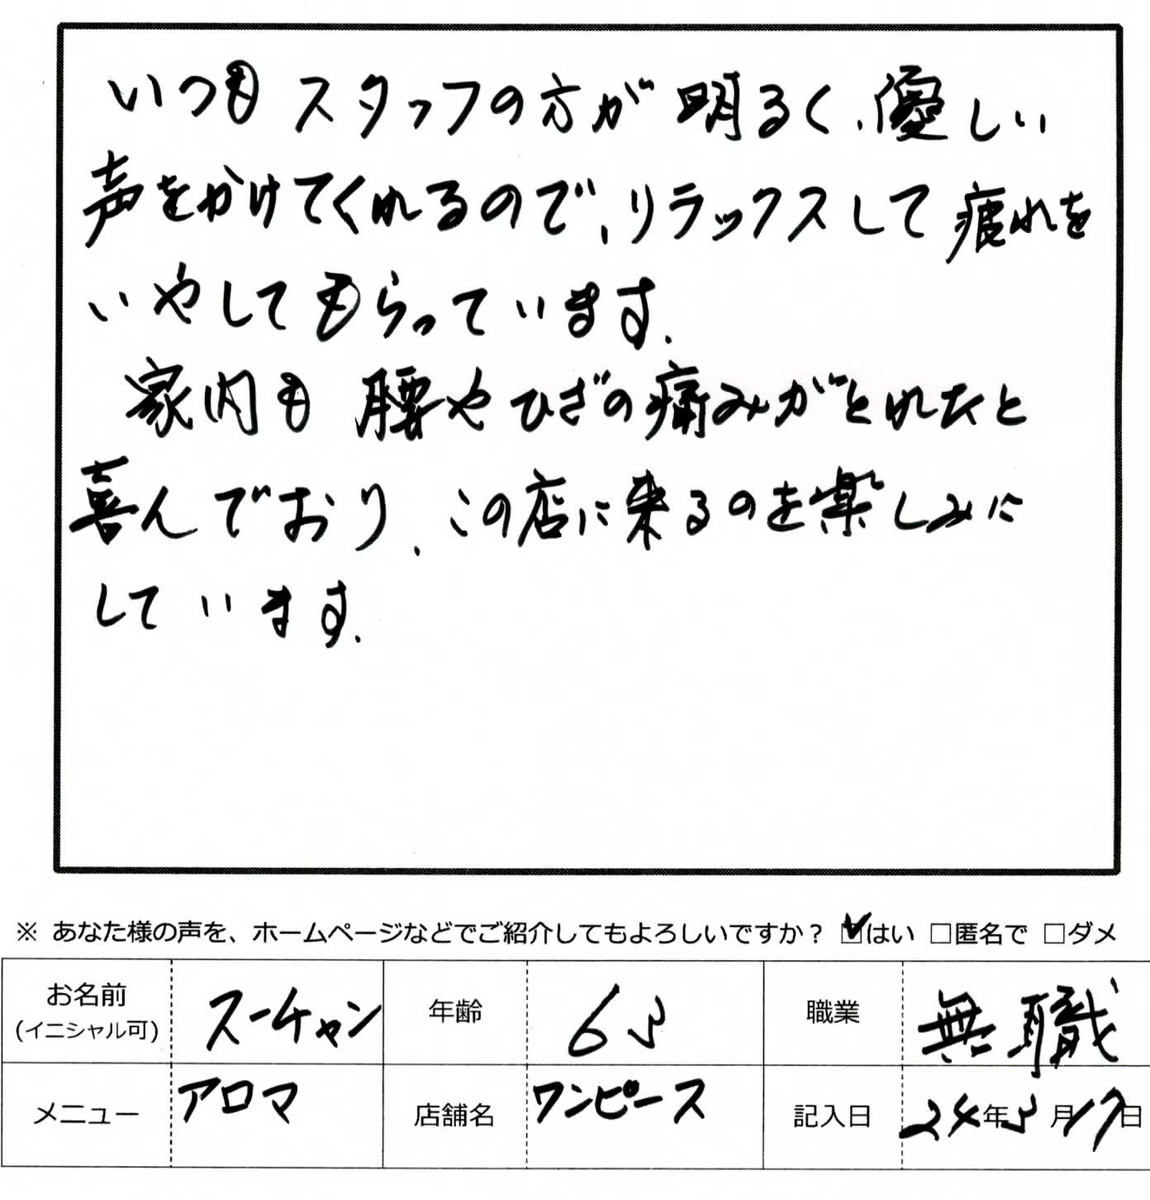 いつもスタッフの方が明るく、優しい
声をかけてくれるので、リラックスして疲れを
いやしてもらっています。
家内も腰やひざの痛みがとれたと
喜んでおり、この店に来るのを楽しみに
しています。
※ あなた様の声を、ホームページなどでご紹介してもよろしいですか？ ☑はい □匿名で □ダメ
お名前 (イニシャル可) スーチャン 年齢 63 職業 無職
メニュー アロマ 店舗名 ワンピース 記入日 24年3月17日